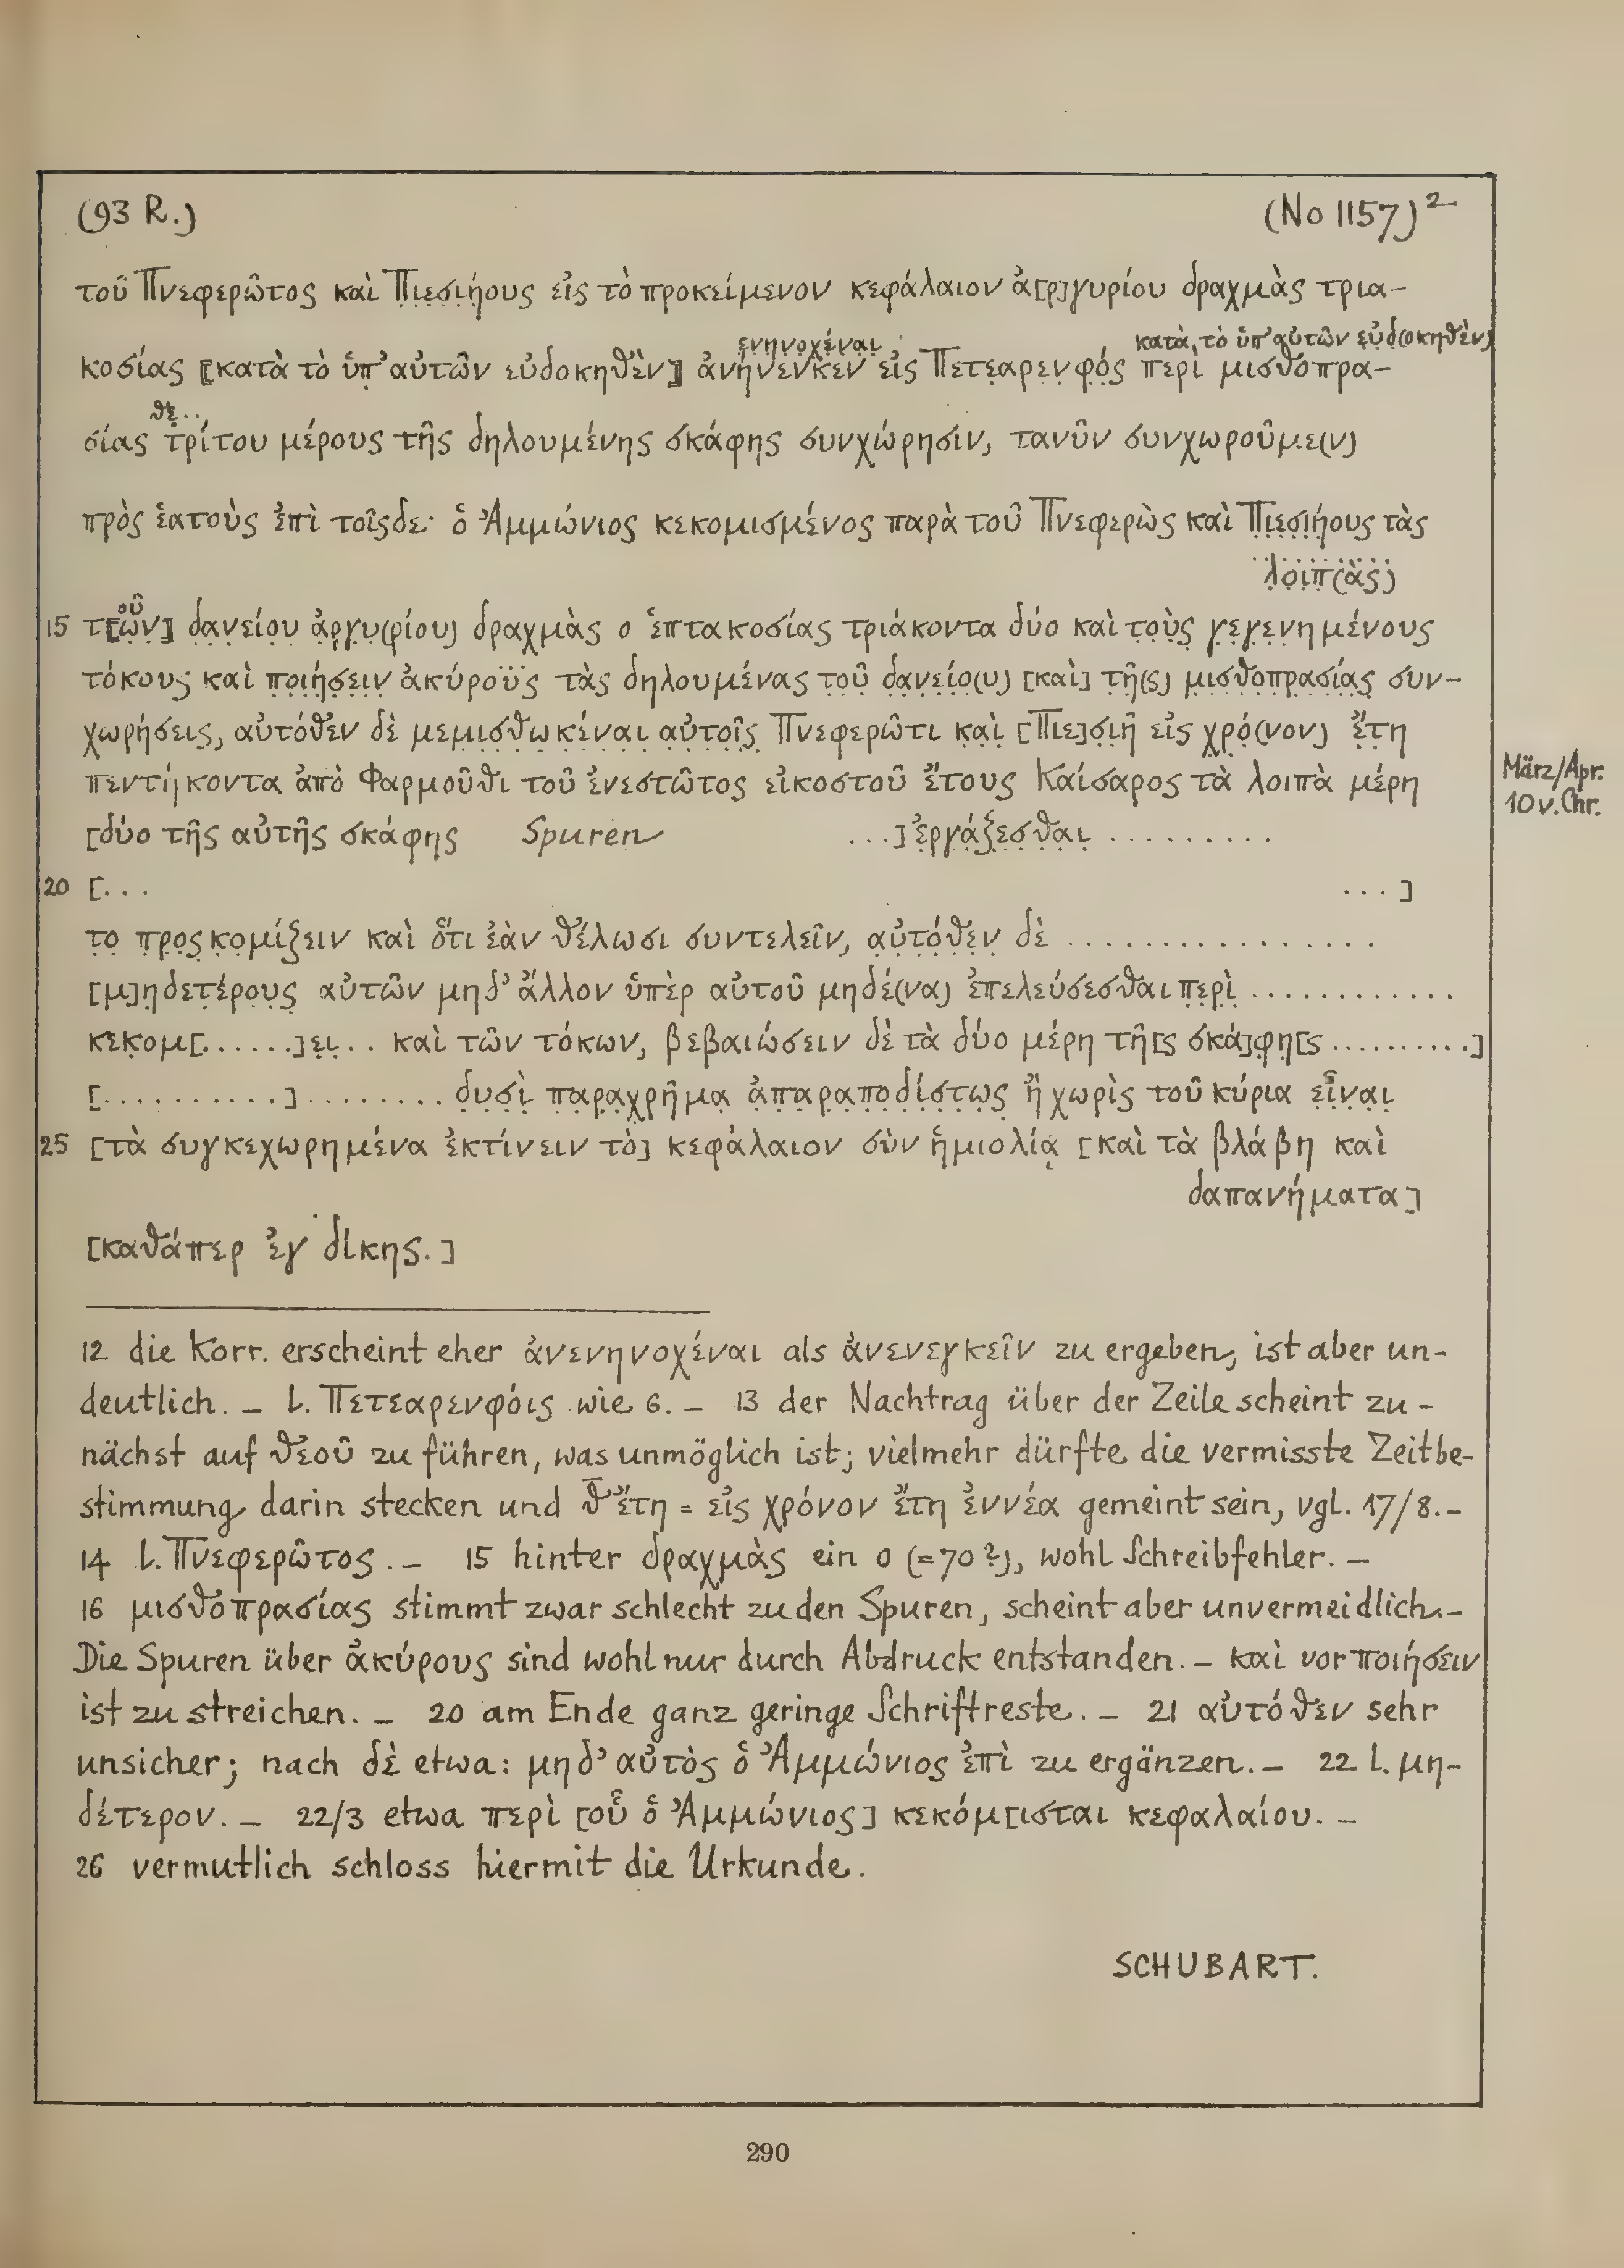 (93 R.) (No 1157)²
τοῦ Πνεφερῶτος καὶ Π̣ι̣ε̣σ̣ι̣ή̣ους εἰς τὸ προκείμενον κεφάλαιον ἀ[ρ]γυρίου δραχμὰς τρια-
ε̣νη̣ν̣ο̣χέ̣ν̣α̣ι̣ κατὰ τὸ ὑπ' αὐτῶν εὐ̣δ̣(οκηθὲν)
κοσίας ⟦κατὰ τὸ ὑπ' αὐτῶν εὐδοκηθὲν⟧ ἀνήνενκεν εἰς Πετε̣αρε̣ν̣φό̣ς περὶ μισθοπρα-
θε̣..
σίας τρίτου μέρους τῆς δηλουμένης σκάφης συνχώρησιν, τανῦν συνχωροῦμε(ν)
πρὸς ἑατοὺς ἐπὶ τοῖςδε· ὁ Ἀμμώνιος κεκομισμένος παρὰ τοῦ Πνεφερὼς καὶ Π̣ι̣ε̣σ̣ι̣ή̣ους τὰς
λ̣ο̣ι̣π̣(ὰς)
οῦ
15 τ⟦ῶ̣ν̣⟧ δ̣α̣ν̣ε̣ίου ἀ̣ρ̣γ̣υ̣(ρίου) δραχμὰς ο ἑπτακοσίας τριάκοντα δύο καὶ τ̣ο̣ὺ̣ς̣ γ̣ε̣γ̣ε̣ν̣η̣μένους
τόκους καὶ π̣ο̣ι̣ή̣σ̣ε̣ι̣ν̣ ἀκύρους τὰς δηλουμένας τ̣ο̣ῦ̣ δ̣α̣ν̣ε̣ίο̣(υ) [καὶ] τ̣ῆ̣(ς) μ̣ι̣σ̣θ̣ο̣π̣ρ̣α̣σ̣ί̣α̣ς̣ συν-
χωρήσεις, αὐτόθεν δὲ μ̣ε̣μ̣ι̣σ̣θ̣ω̣κ̣έ̣ν̣α̣ι̣ α̣ὐ̣τ̣ο̣ῖ̣ς̣ Πνεφερῶτι κ̣α̣ὶ̣ [Πιε]σ̣ι̣ῆ̣ εἰς χ̣ρ̣ό̣(νον) ἔ̣τ̣η
πεντήκοντα ἀπὸ Φαρμοῦθι τοῦ ἐνεστῶτος εἰκοστοῦ ἔτους Καίσαρος τὰ λοιπὰ μέρη
März/Apr.
10 v. Chr.
[δύο τῆς αὐτῆς σκάφης Spuren ...] ἐ̣ρ̣γ̣ά̣ξ̣ε̣σ̣θ̣α̣ι̣ .........
20 [... ...]
τ̣ο̣ π̣ρ̣ο̣ς̣κ̣ο̣μ̣ί̣ξ̣ειν καὶ ὅτι ἐὰν θέλωσι συντελεῖν, α̣ὐ̣τ̣ό̣θ̣ε̣ν̣ δὲ .................
[μ]η̣δετ̣έ̣ρ̣ο̣υ̣ς̣ αὐτῶν μηδ' ἄλλον ὑπὲρ αὐτοῦ μηδέ(να) ἐπελεύσεσθαι π̣ε̣ρ̣ὶ̣ .............
κεκ̣ομ[......]ε̣ι̣.. καὶ τῶν τόκων, βεβαιώσειν δὲ τὰ δύο μέρη τῆ[ς σκά]φ̣η[ς ..........]
[...........]........ δ̣υ̣σ̣ὶ̣ π̣α̣ρ̣α̣χ̣ρ̣ῆ̣μ̣α̣ ἀ̣π̣α̣ρ̣α̣π̣ο̣δ̣ί̣σ̣τ̣ω̣ς̣ ἢ̣ χωρὶς τοῦ κύρια ε̣ἶ̣ν̣α̣ι̣
25 [τὰ συγκεχωρημένα ἐκτίνειν τὸ] κεφάλαιον σὺν ἡμιολίᾳ [καὶ τὰ βλάβη καὶ
δαπανήματα]
[καθάπερ ἐγ δίκης.]
12 die Korr. erscheint eher ἀνενηνοχέναι als ἀνενεγκεῖν zu ergeben, ist aber un-
deutlich. – l. Πετεαρενφόις wie 6. – 13 der Nachtrag über der Zeile scheint zu-
nächst auf θεοῦ zu führen, was unmöglich ist; vielmehr dürfte die vermisste Zeitbe-
stimmung darin stecken und θ̅ ἔτη = εἰς χρόνον ἔτη ἐννέα gemeint sein, vgl. 17/8. –
14 l. Πνεφερῶτος. – 15 hinter δραχμὰς ein ο (= 70?), wohl Schreibfehler. –
16 μισθοπρασίας stimmt zwar schlecht zu den Spuren, scheint aber unvermeidlich. –
Die Spuren über ἀκύρους sind wohl nur durch Abdruck entstanden. – καὶ vor ποιήσειν
ist zu streichen. – 20 am Ende ganz geringe Schriftreste. – 21 αὐτόθεν sehr
unsicher; nach δὲ etwa: μηδ' αὐτὸς ὁ Ἀμμώνιος ἐπὶ zu ergänzen. – 22 l. μη-
δέτερον. – 22/3 etwa περὶ [οὗ ὁ Ἀμμώνιος] κεκόμ[ισται κεφαλαίου. –
26 vermutlich schloss hiermit die Urkunde.
SCHUBART.
290